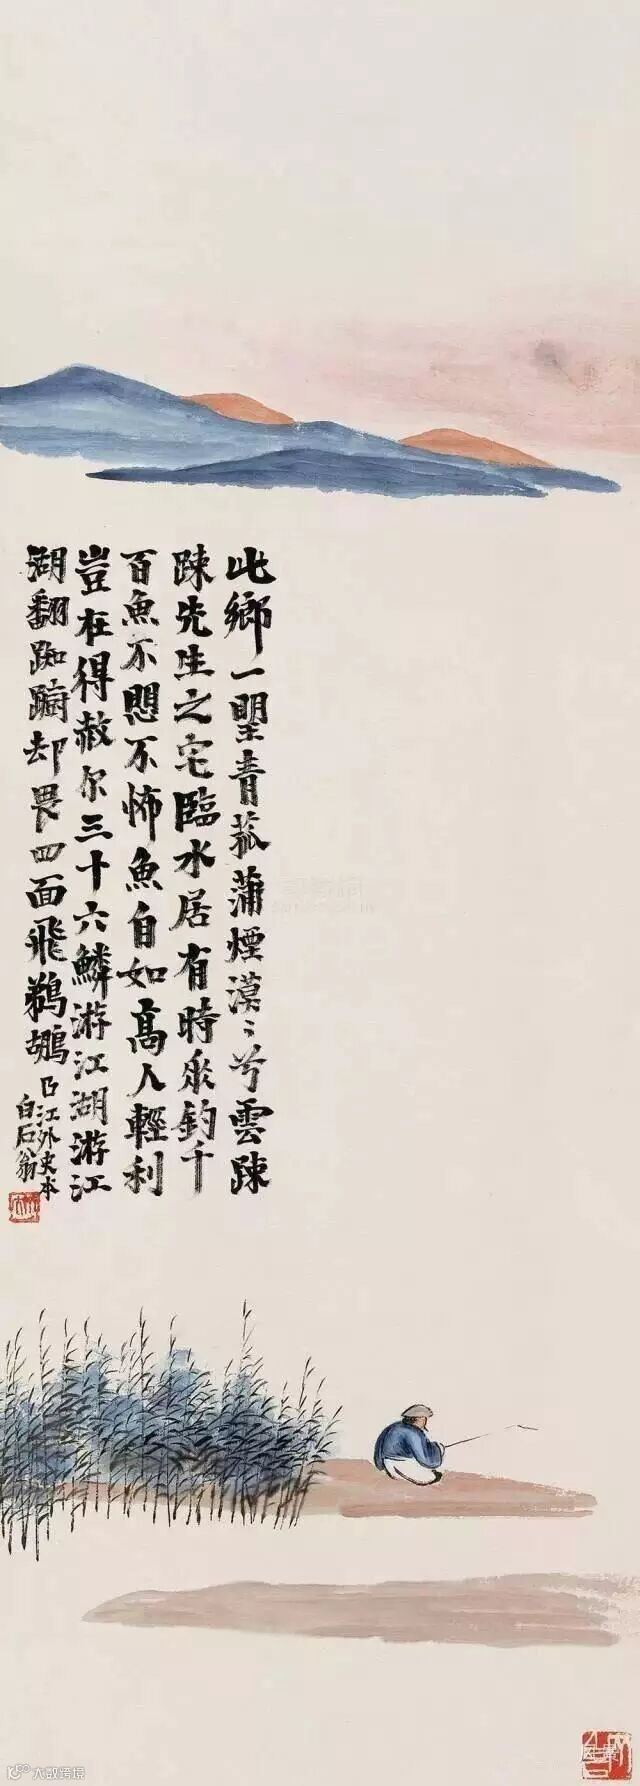 此鄉一望青菰蒲煙漠〻兮雲踈
踈先生之宅臨水居有時垂釣千
百魚不愳不怖魚自如高人輕利
豈在得赦尔三十六鱗游江湖游江
湖翻踟躕却畏四面飛鵜鶘
曲江外史本
白石翁
大数跨境